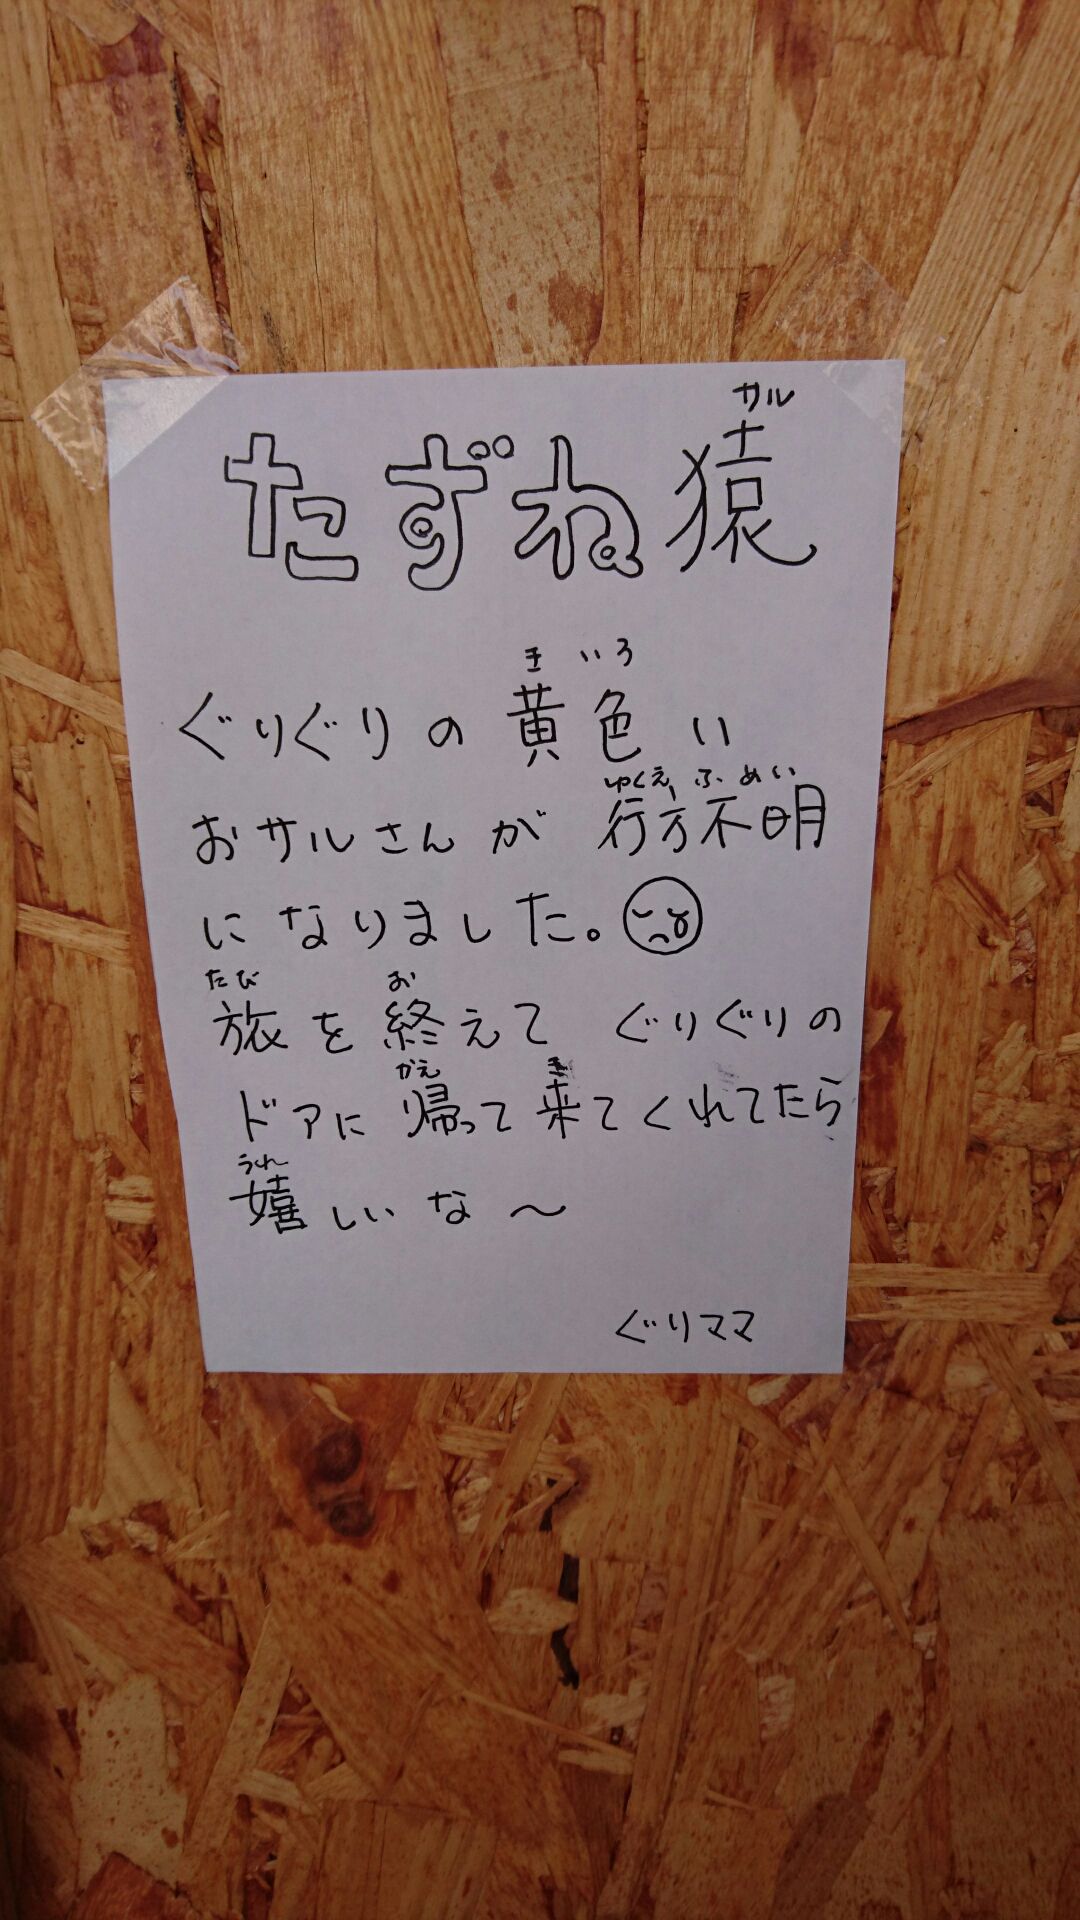 サル
たずね猿
きいろ
ぐりぐりの黄色い
ゆくえふめい
おサルさんが行方不明
になりました。
たび お
旅を終えて ぐりぐりの
かえ き
ドアに帰って来てくれてたら
うれ
嬉しいな〜
ぐりママ